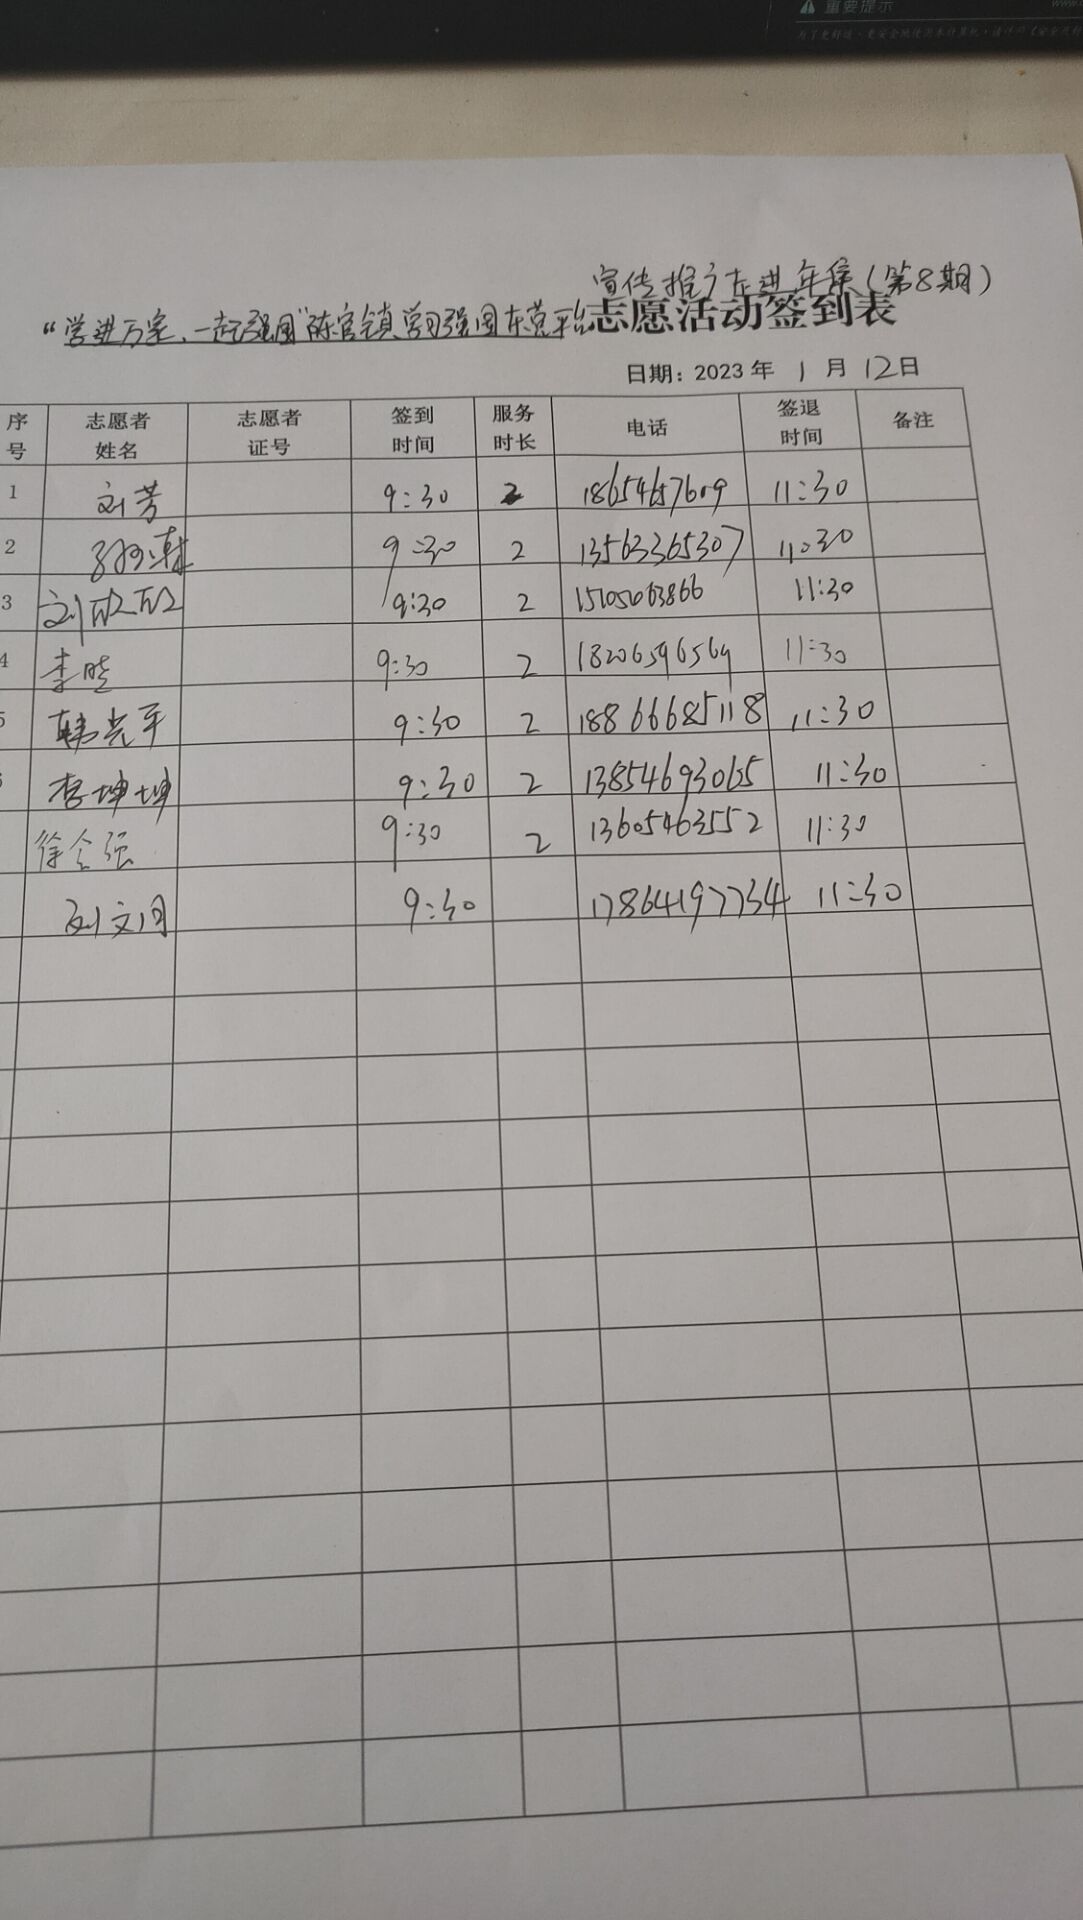 重要提示
宣传推广走进年集(第8期)
"学进万家、一起强国"陈官镇学习强国示范平台志愿活动签到表
日期：2023 年 1 月 12日
序号 志愿者姓名 志愿者证号 签到时间 服务时长 电话 签退时间 备注
1 刘芳 9:30 2 18654657609 11:30
2 9:30 2 13563365307 11:30
3 刘欣欣 9:30 2 15105063866 11:30
4 李晓 9:30 2 18206596569 11:30
5 韩光平 9:30 2 18866685118 11:30
李坤坤 9:30 2 13854693065 11:30
徐会强 9:30 2 13605463552 11:30
刘文月 9:30 17864197734 11:30